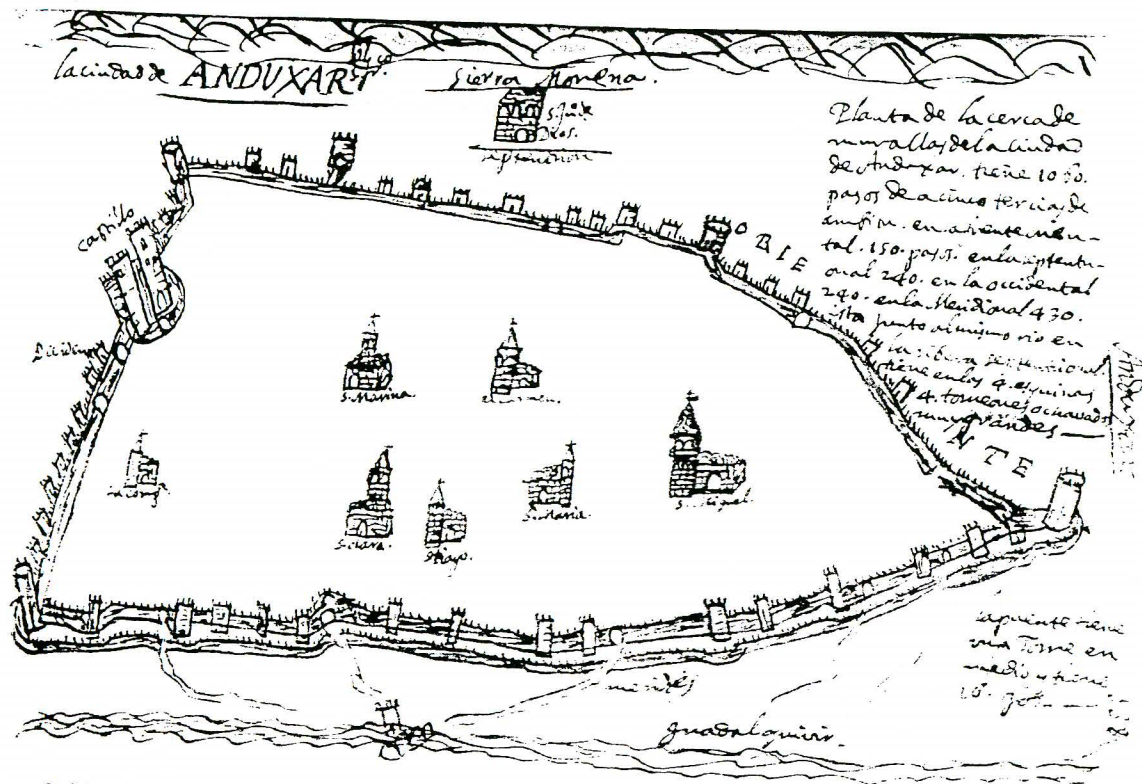 la ciudad de ANDUXAR
Sierra Morena.
S. Juº de
Dios.
septentrion
Planta de la cerca de
murallas de la ciudad
de Anduxar. tiene 1050.
pasos de a cinco tercias de
ambitu. en
tal. 150. pasos. en la septentri-
onal 240. en la occidental
240. en la Meridional 430.
esta junto al mismo rio en
la ribera septentrional
tiene en las 4. esquinas
4. torreones ochavados
muy grandes
ORIE
NTE
castillo
S. Marina.
el carmen
S. Clara.
S. tiago.
S. Maria.
S. Miguel
la puente tiene
una Torre en
medio y tiene
15.
meridies
guadalquivir.